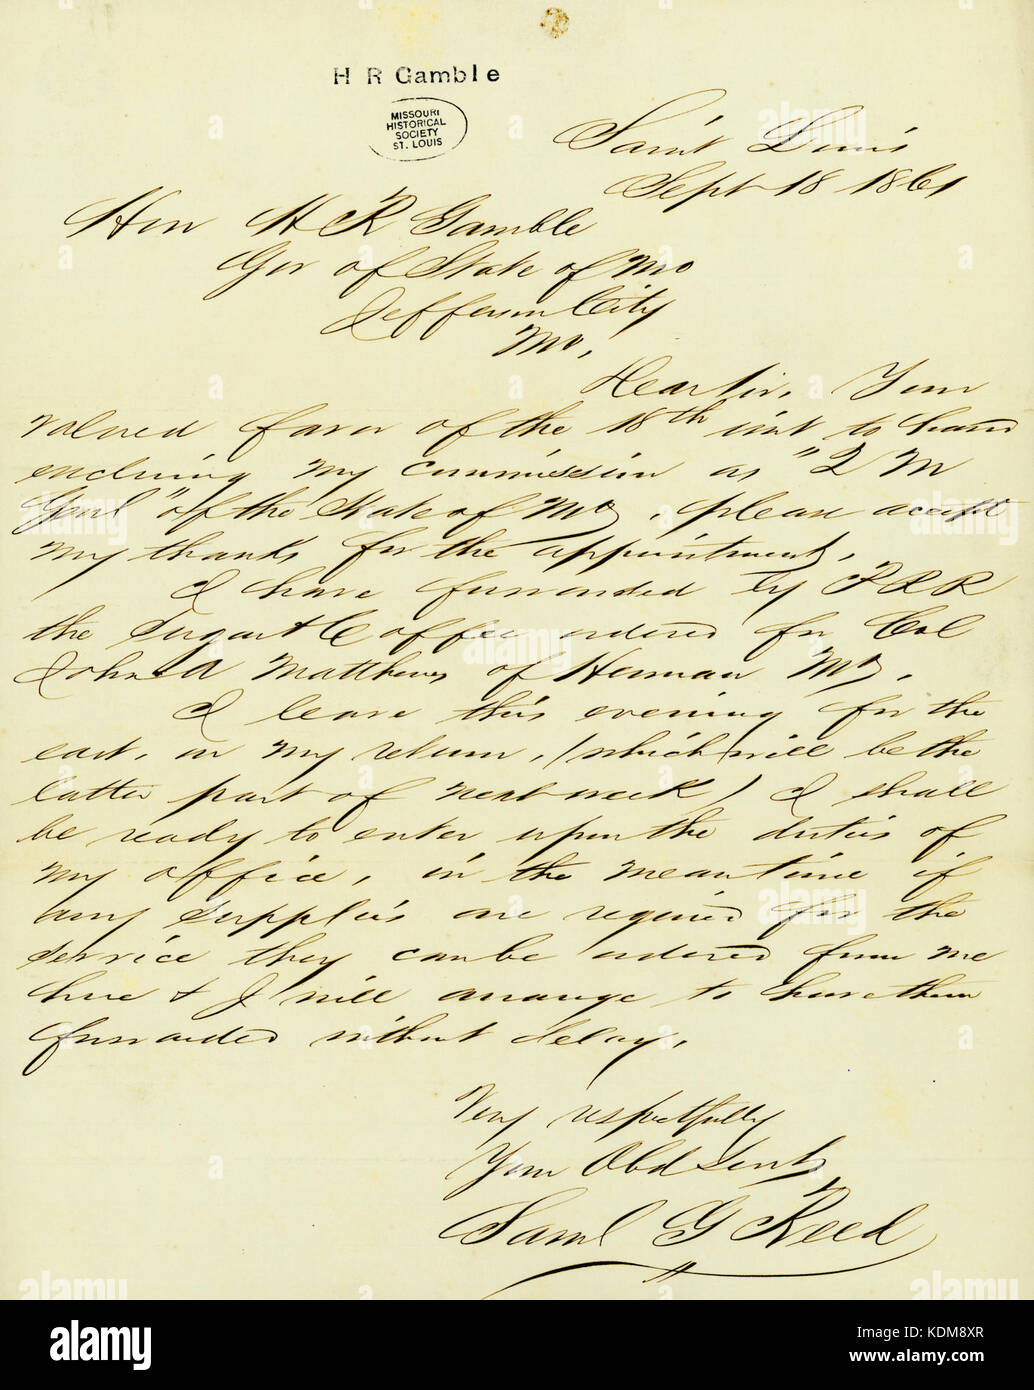 H R Gamble
MISSOURI
HISTORICAL
SOCIETY
ST. LOUIS
Saint Louis
Sept 18 1861
Hon H R Gamble
Gov of State of Mo
Jefferson City
Mo.
Dear Sir, Your
valued favor of the 18th inst to hand
enclosing my commission as "Q M
Genl" of the State of Mo, please accept
my thanks for the appointment.
I have forwarded by P.R.R
the Sugar & Coffee ordered for Col
John A Matthews of Herman Mo.
I leave this evening for the
east, on my return, (which will be the
latter part of next week) I shall
be ready to enter upon the duties of
my office, in the meantime if
any supplies are required for the
service they can be ordered from me
here & I will arrange to have them
forwarded without delay.
Very respectfully
Your Obd Servt
Saml G Reed
alamy
Image ID: KDM8XR
www.alamy.com